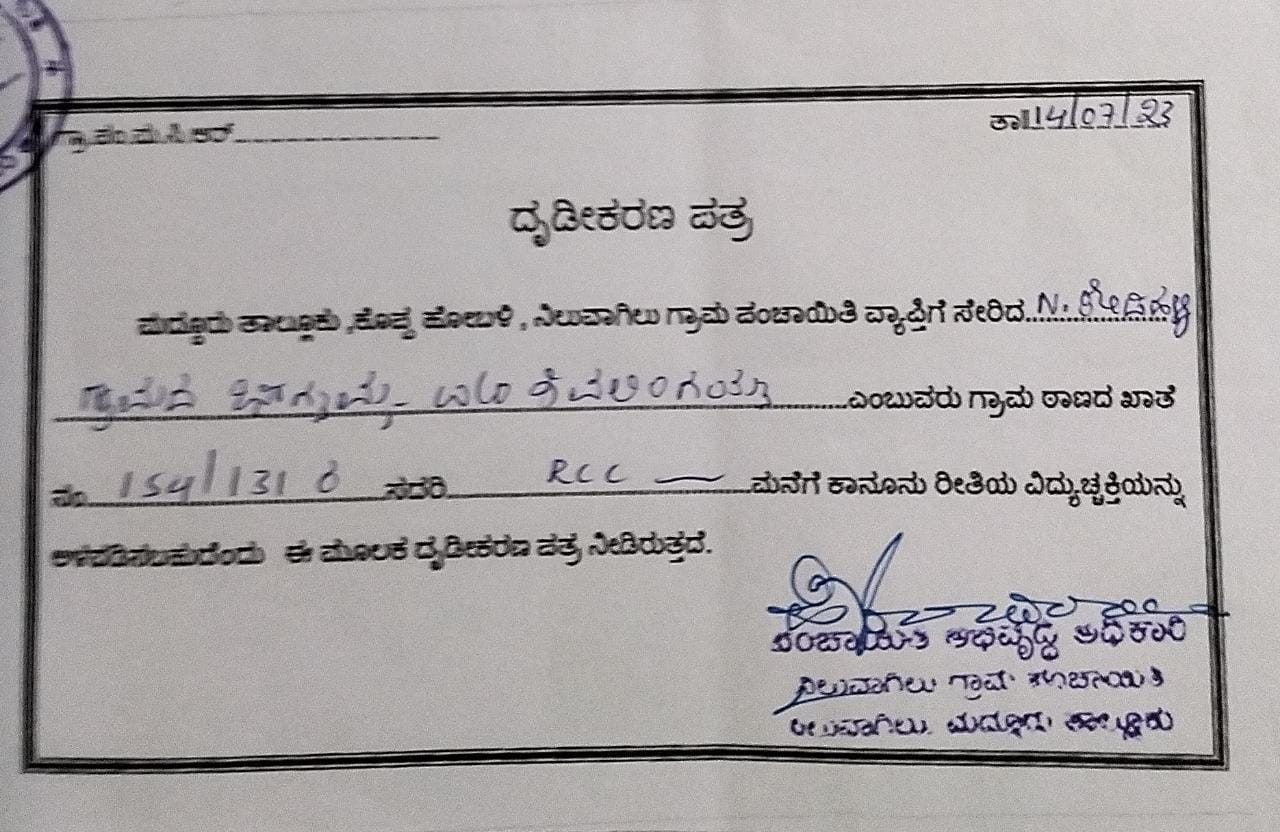 ಗ್ರಾ.ಪಂ.ಮ.ಸಿ.ಆರ್.................. ತಾ||14/07/23
ದೃಡೀಕರಣ ಪತ್ರ
ಮದ್ದೂರು ತಾಲ್ಲೂಕು ,ಕೊಪ್ಪ ಹೋಬಳಿ , ನಿಲುವಾಗಿಲು ಗ್ರಾಮ ಪಂಚಾಯಿತಿ ವ್ಯಾಪ್ತಿಗೆ ಸೇರಿದ N. ಕೋಡಿಹಳ್ಳಿ
ಗ್ರಾಮದ ಭಾಗ್ಯಮ್ಮ ಎಂಬುವರು ಗ್ರಾಮ ಠಾಣದ ಖಾತೆ
ನಂ 154/131 ಸದರಿ RCC — ಮನೆಗೆ ಕಾನೂನು ರೀತಿಯ ವಿದ್ಯುಚ್ಚಕ್ತಿಯನ್ನು
ಅಳವಡಿಸಬಹುದೆಂದು ಈ ಮೂಲಕ ದೃಡೀಕರಣ ಪತ್ರ ನೀಡಿರುತ್ತದೆ.
ಪಂಚಾಯಿತಿ ಅಭಿವೃದ್ಧಿ ಅಧಿಕಾರಿ
ನಿಲುವಾಗಿಲು ಗ್ರಾಮ ಪಂಚಾಯಿತಿ
ನಿಲುವಾಗಿಲು. ಮದ್ದೂರು ತಾಲ್ಲೂಕು